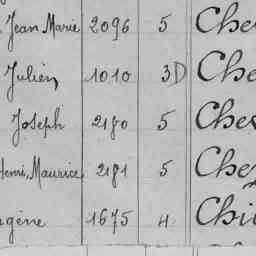 Jean Marie 2096 5 Che
Julien 1010 3D Che
Joseph 2180 5 Che
Henri, Maurice 2181 5 Che
gène 1675 4 Chi